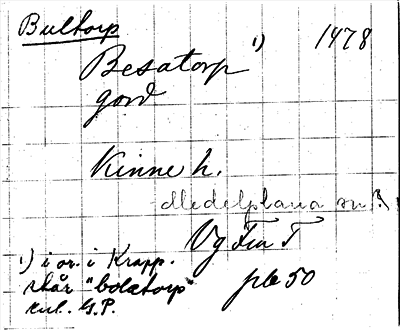 Bultorp
Besatorp 1) 1478
gord
Kinne h.
Medelplana sn?
Vg Fra T
1) i or. i Krapp.
står "bolatorp"
enl. G.P. pb 50